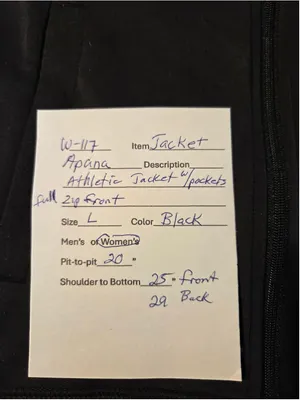 W-117 Item Jacket
Apana Description
Athletic Jacket w/pockets
full Zip front
Size L Color Black
Men's or Women's
Pit-to-pit 20 "
Shoulder to Bottom 25 " front
29 Back